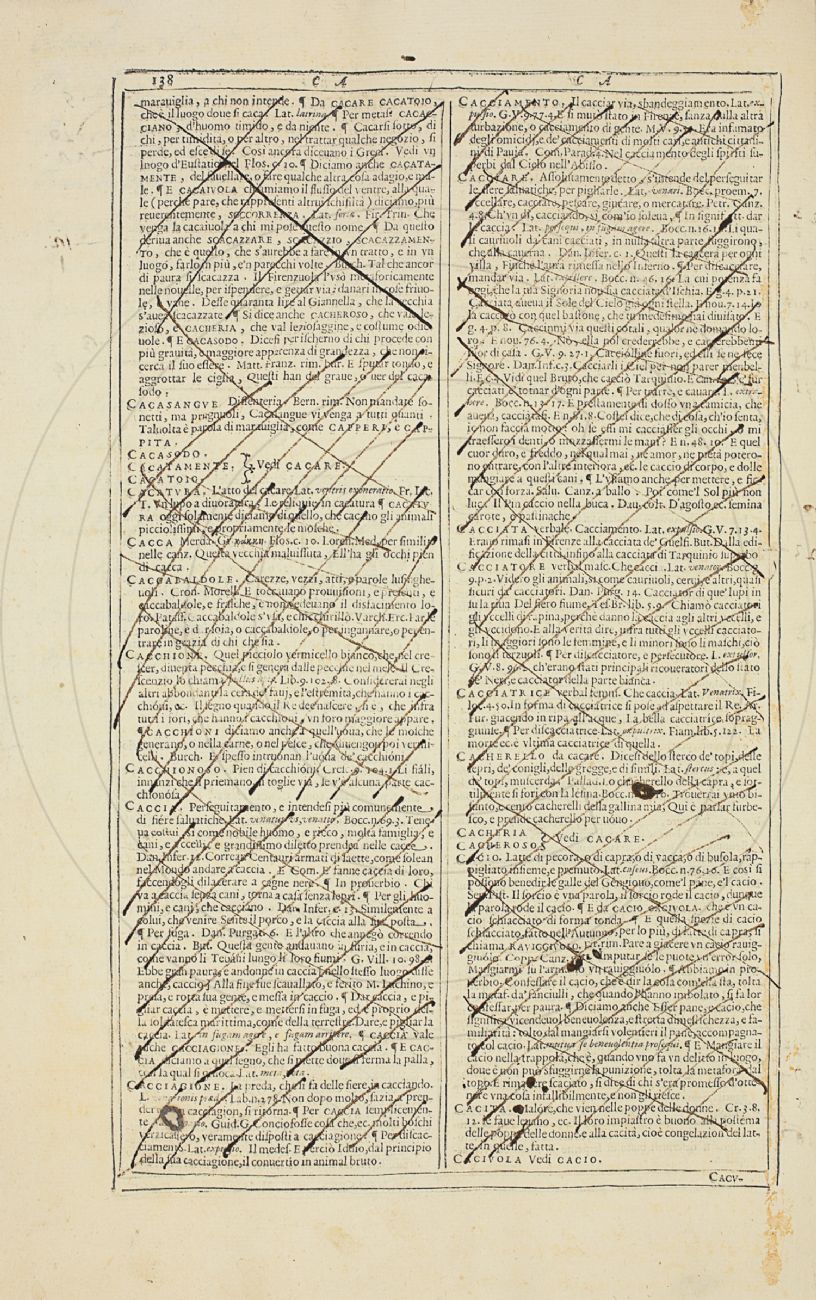 138 C A C A
marauiglia, a chi non intende. ¶ Da CACARE CACATOIO,
che è il luogo doue si caca. Lat. latrina. ¶ Per metaf. CACAC-
CIANO, d'huomo timido, e da niente. ¶ Cacarsi sotto, di
chi, per timidità, o per altro, nel trattar qualche negozio, si
perde, ed esce di se. Così ancora diceuano i Greci. Vedi vn
luogo d'Eustatio. Flos. c. 10. ¶ Diciamo anche CACATA-
MENTE, del fauellare, o fare qualche altra cosa adagio, e ma-
le. ¶ E CACAIVOLA chiamiamo il flusso del ventre, alla qua-
le (perchè pare, che rappresenti altrui schifiltà) diciamo, più
reuerentemente, SOCCORRENZA. Lat. foria. Fir. Trin. Che
venga la cacaiuola a chi mi pose questo nome. ¶ Da questo
deriua anche SCACAZZARE, SCACAZZIO, SCACAZZAMEN-
TO, che è quello, che s'aurebbe a fare in vn tratto, e in vn
luogo, farlo in più, e'n parecchi volte. Burch. Tal che ancor
di paura si scacazza. Il Firenzuola l'vsò metaforicamente
nelle nouelle, per ispendere, e gettar via i danari in cose friuo-
le, vane. Desse quaranta lire al Giannella, che la vecchia
s'auea scacazzate. ¶ Si dice anche CACHEROSO, che vale le-
zioso, e CACHERIA, che val leziosaggine, e costume odie-
uole. ¶ E CACASODO. Dicesi per ischerno di chi procede con
più grauità, e maggiore apparenza di grandezza, che non ri-
cerca il suo essere. Matt. Franz. rim. bur. E sputar tondo, e
aggrottar le ciglia, Questi han del graue, o uer del caca-
sodo.
CACASANGVE Dissenteria. Bern. rim. Non mandate so-
netti, ma prugnuoli, Cacasangue vi venga a tutti quanti.
Taluolta è parola di marauiglia, come CAPPERI, e CAP-
PITA.
CACASODO.
CACATAMENTE. Vedi CACARE.
CACATOIO.
CACATVRA. L'atto del cacare. Lat. ventris exoneratio. Fr. Iac.
T. Vn lupo a diuorarmi, Le reliquie in cacatura ¶ CACATV-
RA oggi solamente diciamo di quello, che cacano gli animali
picciolissimi, e propriamente le mosche.
CACCA Merda. Gr. κάκκη. Flos. c. 10. Loren. Med. per similit.
nelle canz. Questa vecchia maluissuta, Ell'ha gli occhi pien
di cacca.
CACCABALDOLE. Carezze, vezzi, atti, o parole lusinghe-
uoli. Cron. Morell. E toccauano prouuisioni, e presenti, e
caccabaldole, e frasche, e non vedeuano il disfacimento lo-
ro. Pataff. Caccabaldole s'vsa, e chicchirillò. Varch. Erc. Far le
paroline, è dir soia, o caccabaldole, o per ingannare, o per en-
trare in grazia di chi che sia.
CACCHIONE. Quel picciolo vermicello bianco, che nel cre-
scer, diuenta pecchia, e si genera dalle pecchie nel mele. Il Cre-
scenzio lo chiama pullus apis. Lib. 9. 102. 8. Considererai negli
altri abbondanti la cera de' fiaui, e l'estremità, che hanno i cac-
chioni, &c. Il segno quando il Re dee nascere, si è, che infra
tutti i fori, che hanno i cacchioni, vn foro maggiore appare.
¶ CACCHIONI diciamo anche a quell'uoua, che le mosche
generano, o nella carne, o nel pesce, che diuengon poi vermi-
celli. Burch. E spesso intruonan l'uoua de' cacchioni.
CACCHIONOSO. Pien di cacchioni. Cresc. 9. 104. 1. Li fiali,
innanzi che si priemano, si toglie via, se v'è alcuna parte cac-
chionosa.
CACCIA. Perseguitamento, e intendesi più comunemente
di fiere saluatiche. Lat. venatus vs, venatio. Bocc. n. 69. 3. Tene-
ua costui, si come nobile huomo, e ricco, molta famiglia, e
cani, e vccelli, e grandissimo diletto prendea nelle cacce.
Dan. Infer. 12. Correan Centauri armati di saette, come solean
nel Mondo andare a caccia. E Com. E fanne caccia di loro,
faccendogli dilacerare a cagne nere. ¶ In prouerbio. Chi
va a caccia senza cani, torna a casa senza lepri. ¶ Per gli huo-
mini, e cani, che cacciano. Dan. Infer. c. 13. Similemente a
colui, che venire Sente il porco, e la caccia alla sua posta.
¶ Per fuga. Dan. Purgat. 6. E l'altro che annegò correndo
in caccia. But. Questa gente andauano in furia, e in caccia,
come vanno li Tebani lungo li loro fiumi. G. Vill. 10. 98. 2.
Ebbe gran paura, e andonne in caccia. ¶ nello stesso luogo disse
anche, caccio. Alla fine fue scauallato, e ferito M. Iacchino, e
presa, e rotta sua gente, e messa in caccio. ¶ Dar caccia, e pi-
gliar caccia, è mettere, e mettersi in fuga, ed è proprio del-
la soldatesca marittima, come della terrestre. Dare, e pigliar la
caccia. Lat. in fugam agere, e fugam arripere. ¶ CACCIA vale
anche CACCIAGIONE. Egli ha fatto buona caccia. ¶ E CAC-
CIA diciamo a quel segno, che si mette doue si ferma la palla,
con la qual si giuoca. Lat. meta, ta.
CACCIAGIONE. La preda, che si fa delle fiere, in cacciando.
Lab. n. 278. Non dopo molto, sazia, a pren-
der cacciagion, si riposa. ¶ Per CACCIA semplicemen-
te. Guid. G. Conciofosse cosa che, ec. molti boschi
veramente disposti a cacciagione. ¶ Per discac-
ciamento. Lat. expulsio. Il medes. E perciò Iddio, dal principio
della sua cacciagione, il conuertio in animal bruto.
CACCIAMENTO. Il cacciar via, sbandeggiamento. Lat. ex-
pulsio. G. V. 9. 77. 4. E si mutò stato in Firenze, sanza nulla altra
turbazione, o cacciamento di gente. M. V. 9. Era infamato
degli omicidi, e de' cacciamenti di molti cari, e antichi cittadi-
ni di Pauia. Com. Parad. 4. Nel cacciamento degli spiriti su-
perbi dal Cielo nell'Abisso.
CACCIARE. Assolutamente detto, s'intende del perseguitar
le fiere saluatiche, per pigliarle. Lat. venari. Bocc. proem. 7.
Vccellare, cacciare, pescare, giucare, o mercatare. Petr. Canz.
4. 8. Ch'vn dì, cacciando, sì com'io soleua, ¶ In signific. att. dar
la caccia. Lat. persequi, in fugam agere. Bocc. n. 16. 15. Li qua-
si cauriuoli da' cani cacciati, in nulla altra parte fuggirono,
che alla cauerna. Dan. Infer. c. 1. Questi la caccerà per ogni
villa, Finchè l'aurà rimessa nello 'nferno. ¶ Per discacciare,
mandar via. Lat. expellere. Bocc. n. 46. 16. La cui potenza fa
oggi, che la tua Signoria non sia cacciata d'Ischia. E g. 4. p. 21.
Cacciata aueua il Sole del Cielo già ogni stella. E nou. 7. 14. Io
la cacceró con quel bastone, che tu medesimo hai diuisato. E
g. 4. p. 8. Caccinmi via questi cotali, qualor ne domando lo-
ro. E nou. 76. 4. Nò, ella nol crederrebbe, e caccerebbemi
fuor di casa. G. V. 9. 27. 1. Cacciollne fuori, ed elli se ne fece
Signore. Dan. Inf. c. 3. Cacciarli i Ciel per non parer men bel-
li. E c. 4. Vidi quel Bruto, che cacciò Tarquinio. E can. 10. E' fur
cacciati, e' tornar d'ogni parte. ¶ Per trarre, e cauare. L. extra-
here. Bocc. n. 12. 17. E pestamento di dosso vna camicia, che
aueua, cacciatasi. E n. 81. 8. Costei dice, che di cosa, ch'io senta,
io non faccia motto: oh se essi mi cacciasser gli occhi, o mi
traessero i denti, o mozzassermi le mani? E n. 48. 10. E quel
cuor duro, e freddo, nel qual mai, nè amor, nè pietà potero-
no entrare, con l'altre interiora, ec. le caccio di corpo, e dolle
mangiare a questi cani. ¶ L'vsiamo anche, per mettere, e fic-
car con forza. Salu. Canz. a ballo. Poi come'l Sol più non
luce, Il Pin caccio nella buca. Dau. colt. D'agosto ec. semina
carote, e pastinache.
CACCIATA verbale. Cacciamento. Lat. expulsio. G. V. 7. 13. 4.
Erano rimasi in Firenze alla cacciata de' Guelfi. But. Dalla edi-
ficazione della città, infino alla cacciata di Tarquinio superbo
CACCIATORE verbal masc. Che cacci. Lat. venator. Bocc. g.
9. p. 2. Videro gli animali, sì come cauriuoli, cerui, e altri, quasi
sicuri da' cacciatori. Dan. Purg. 14. Cacciator di que' lupi in
su la riua Del fiero fiume. Tes. Br. lib. 5. 9. Chiamò cacciatori
gli vccelli di rapina, perchè danno la caccia agli altri vccelli, e
gli vccidono. E alla verità dire, infra tutti gli vccelli cacciato-
ri, li maggiori sono le femmine, e li minori sono li maschi, ciò
sono i terzuoli. ¶ Per discacciatore, e persecutore. L. expulsor.
G. V. 8. 96. 2. ch'erano stati principali ricoueratori dello stato
de' Neri, e cacciator della parte bianca.
CACCIATRICE verbal femm. Che caccia. Lat. Venatrix. Fi-
loc. 4. 50. In forma di cacciatrice si pose ad aspettare il Re. Ar.
Fur. giacendo in ripa gli acque, La bella cacciatrice soprag-
giunse. ¶ Per discacciatrice. Lat. expultrix. Fiam. lib. 5. 122. La
morte ec. è vltima cacciatrice di quella.
CACHERELLO da cacare. Dicesi dello sterco de' topi, delle
lepri, de' conigli, delle gregge, e di simili. Lat. stercus: e, a quel
de' topi, muscerda. Pallad. Il cacherello della capra, e sot-
tilmente si fori con la lesina. Bocc. n. Trouerai vino bi-
sunto, e cento cacherelli della gallina mia; Qui è parlar furbe-
sco, e prende cacherello per uouo.
CACHERIA
Vedi CACARE.
CACHEROSO
CACIO. Latte di pecora, o di capra, o di vacca, o di bufola, rap-
pigliato insieme, e premuto. Lat. caseus. Bocc. n. 76. 10. E così si
possono benedir le galle del Gengiouo, come'l pane, e'l cacio.
Sen. Pist. Il sorcio è vna parola, il sorcio rode il cacio, dunque
la parola rode il cacio. ¶ E da CACIO, CACIVOLA, che è vn ca-
cio schiacciato di forma tonda. ¶ E quella spezie di cacio
schiacciato, fatto nell'Autunno, per lo più, di latte di capra, si
chiama RAVIGGIVOLO. Lat. rim. Pare a giacere vn cacio rauig-
giuolo. Copp. Canz. Imputar se le puote vn error solo,
Mangiarmi su l'arma vn rauiggiuolo. ¶ Abbiamo in pro-
uerbio. Confessare il cacio, che è dir la cosa com'ella sta, tolta
la metaf. da' fanciulli, che quando l'hanno imbolato, si fa lor
confessar, per paura. ¶ Diciamo anche Esser pane, e cacio, che
significa vicendeuol beneuolenza, e stretta dimestichezza, e fa-
miliarità: tolto dal mangiarsi volentieri il pane accompagna-
to col cacio. Lat. mutua se beneuolentia prosequi. ¶ E Mangiare il
cacio nella trappola, che è, quando vno fa vn delitto in luogo,
doue e' non può sfuggirne la punizione, tolta la metafora dal
topo. E rimanere scaciato, si dice di chi s'era promesso d'otte-
nere vna cosa infallibilmente, e non gli riesce.
CACITÀ. Malore, che vien nelle poppe delle donne. Cr. 3. 8.
12. se faue leuano, ec. Il loro impiastro è buono alla postema
delle poppe delle donne, e alla cacità, cioè congelazion del lat-
te in quelle, fatta.
CACIVOLA Vedi CACIO.
CACV-